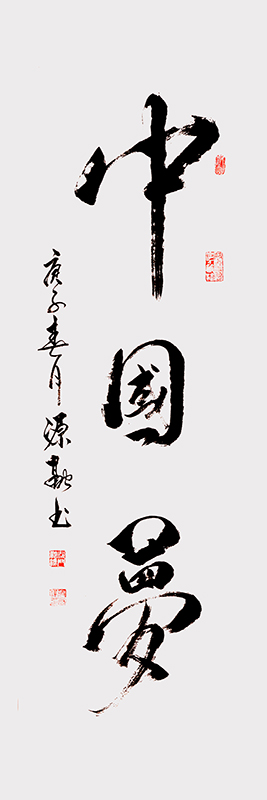 中國夢
庚子春月源书